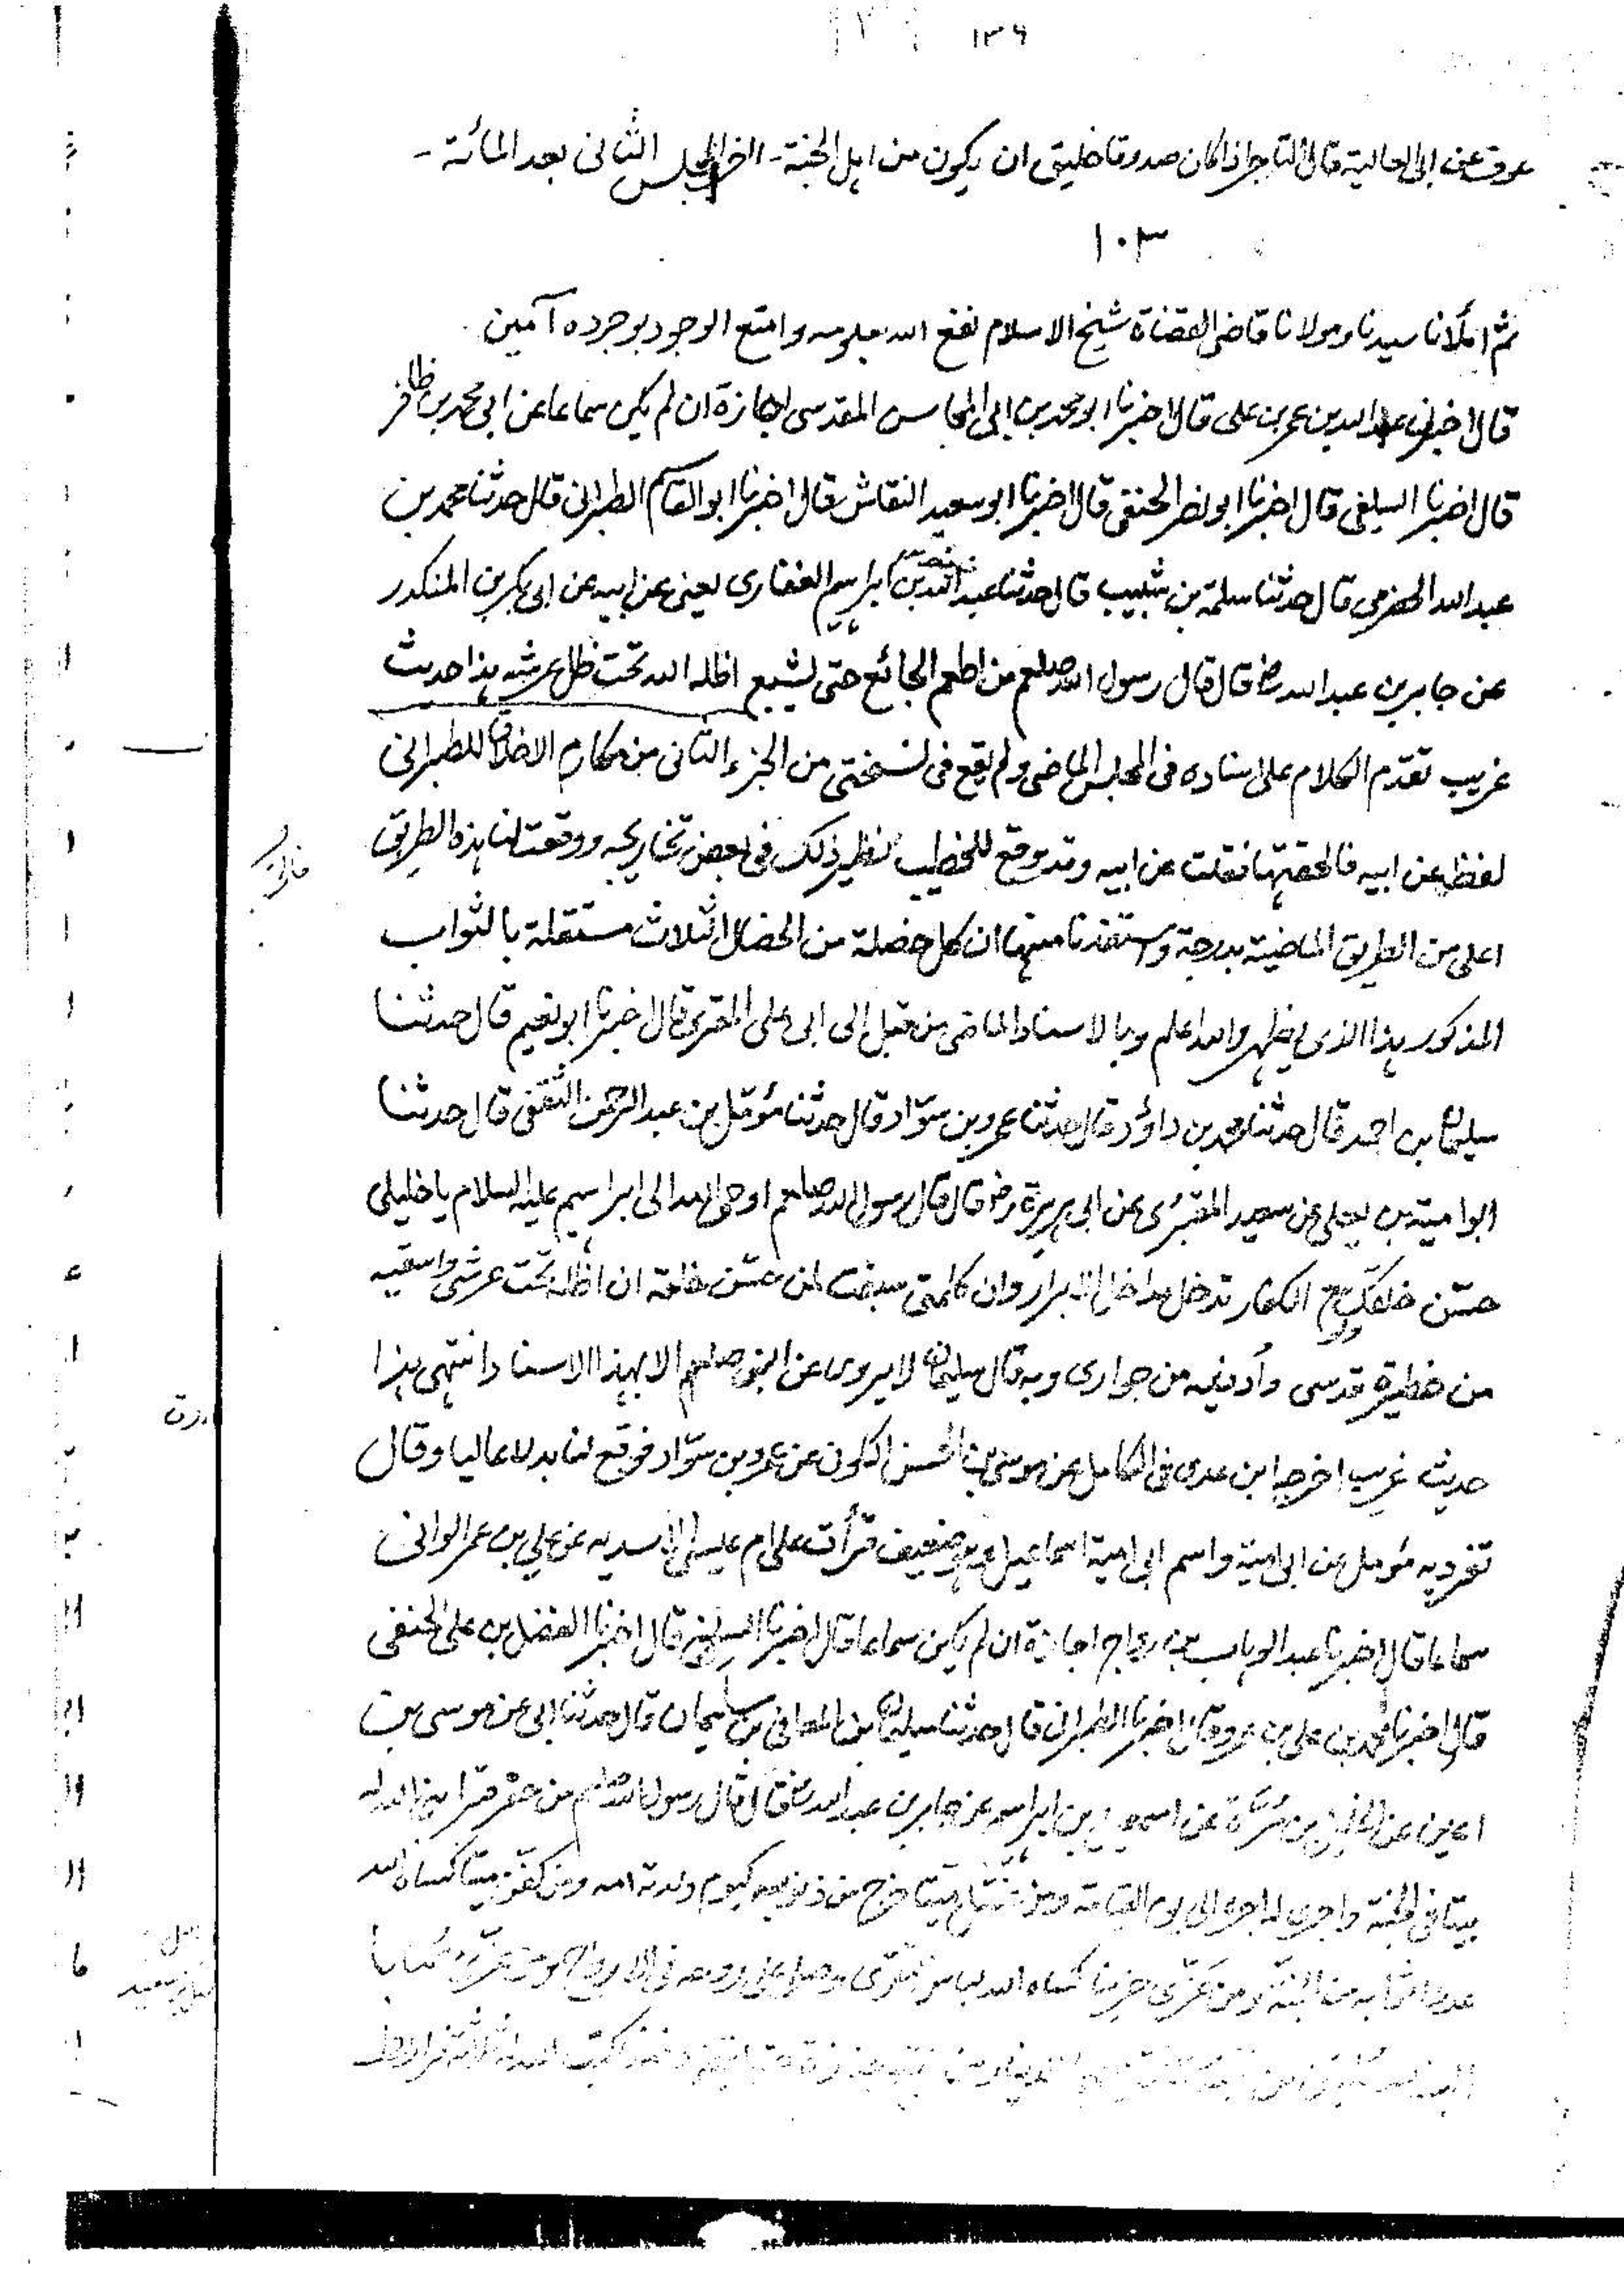 ١٣٩
عروة عن ابى العالية قال التاجر اذا كان صدوقا خليق ان يكون من اهل الجنة - آخر المجلس الثانى بعد المائة -
١٠٣
ثم املأنا سيدنا ومولانا قاضى القضاة شيخ الاسلام نفع الله بعلومه وامتع الوجود بوجوده آمين
قال اخبرنى عبد الله بن عمر بن على قال اخبرنا ابو محمد بن ابى المحاسن المقدسى اجازة ان لم يكن سماعا عن ابى محمد بن ظافر
قال اخبرنا السلفى قال اخبرنا ابو نصر الحنفى قال اخبرنا ابو سعيد النقاش قال اخبرنا ابو القاسم الطبرانى قال حدثنا محمد بن
عبد الله الحضرمى قال حدثنا سلمة بن شبيب قال حدثنا عبد الله بن ابراهيم الغفارى يعنى عن ابيه عن ابى بكر بن المنكدر
عن جابر بن عبد الله رضـ قال قال رسول الله صلعم من اطعم الجائع حتى يشبع اظله الله تحت ظل عرشه هذا حديث
غريب تقدم الكلام على اسناده فى المجلس الماضى ولم يقع فى نسختى من الجزء الثانى من مكارم الاخلاق للطبرانى
لفظ عن ابيه فالحقتها فقلت عن ابيه وقد وقع للخطيب نظير ذلك فى بعض تخاريجه ووقعت لنا هذه الطريق
اعلى من الطريق الماضية بدرجة واستفدنا منها ان كل خصلة من الخصال الثلاث مستقلة بالثواب
المذكور هذا الذى يظهر والله اعلم وبالاسناد الماضى من قبل الى ابى على المقرئ قال اخبرنا ابو نعيم قال حدثنا
سليمان بن احمد قال حدثنا محمد بن داؤد قال حدثنا عمرو بن سوّاد قال حدثنا مؤمّل بن عبد الرحمن الثقفى قال حدثنا
ابو امية بن يعلى عن سعيد المقبرى عن ابى هريرة رضـ قال قال رسول الله صلعم اوحى الله الى ابراهيم عليه السلام يا خليلى
حسّن خلقك ولو مع الكفار تدخل مداخل الابرار وان كلمتى سبقت لمن حسّن خلقه ان اظله تحت عرشى واسقيه
من حظيرة قدسى وأدنيه من جوارى وبه قال سليمان لا يروى عن النبى صلعم الا بهذا الاسناد انتهى هذا
حديث غريب اخرجه ابن عدى فى الكامل عن موسى بن الحسن الكوفى عن عمرو بن سوّاد فوقع لنا بدلا عاليا وقال
تفرد به مؤمل عن ابى امية واسم ابى امية اسماعيل وهو ضعيف قرأت على ام عيسى الاسدية عن على بن عمر الوانى
سماعا قال اخبرنا عبد الوهاب بن رواج اجازة ان لم يكن سماعا قال اخبرنا السلفى قال اخبرنا الفضل بن على الحنفى
قال اخبرنا محمد بن على بن عمرو قال اخبرنا الطبرانى قال حدثنا سليمان بن المعافى بن سليمان قال حدثنا ابى عن موسى بن
اعين عن الخليل بن مرّة عن اسمعيل بن ابراهيم عن جابر بن عبد الله رضـ قال قال رسول الله صلعم من حفر قبرا بنى الله له
بيتا فى الجنة واجرى له اجره الى يوم القيامة ومن غسّل ميتا خرج من ذنوبه كيوم ولدته امه ومن كفّن ميتا كساه الله
عدد اثوابه من الجنة ومن عزّى حزينا كساه الله لباس التقوى وصلى على روحه فى الارواح ومن عزّى مصابا